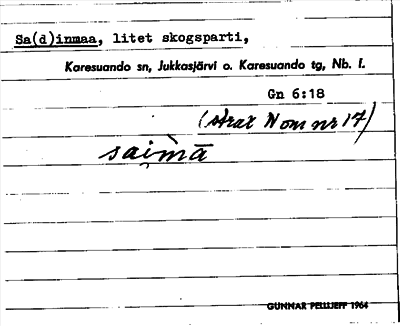 Sa(d)inmaa, litet skogsparti,
Karesuando sn, Jukkasjärvi o. Karesuando tg, Nb. l.
Gn 6:18
(strax N om nr 17)
sai̯mā
GUNNAR PELLIJEFF 1964